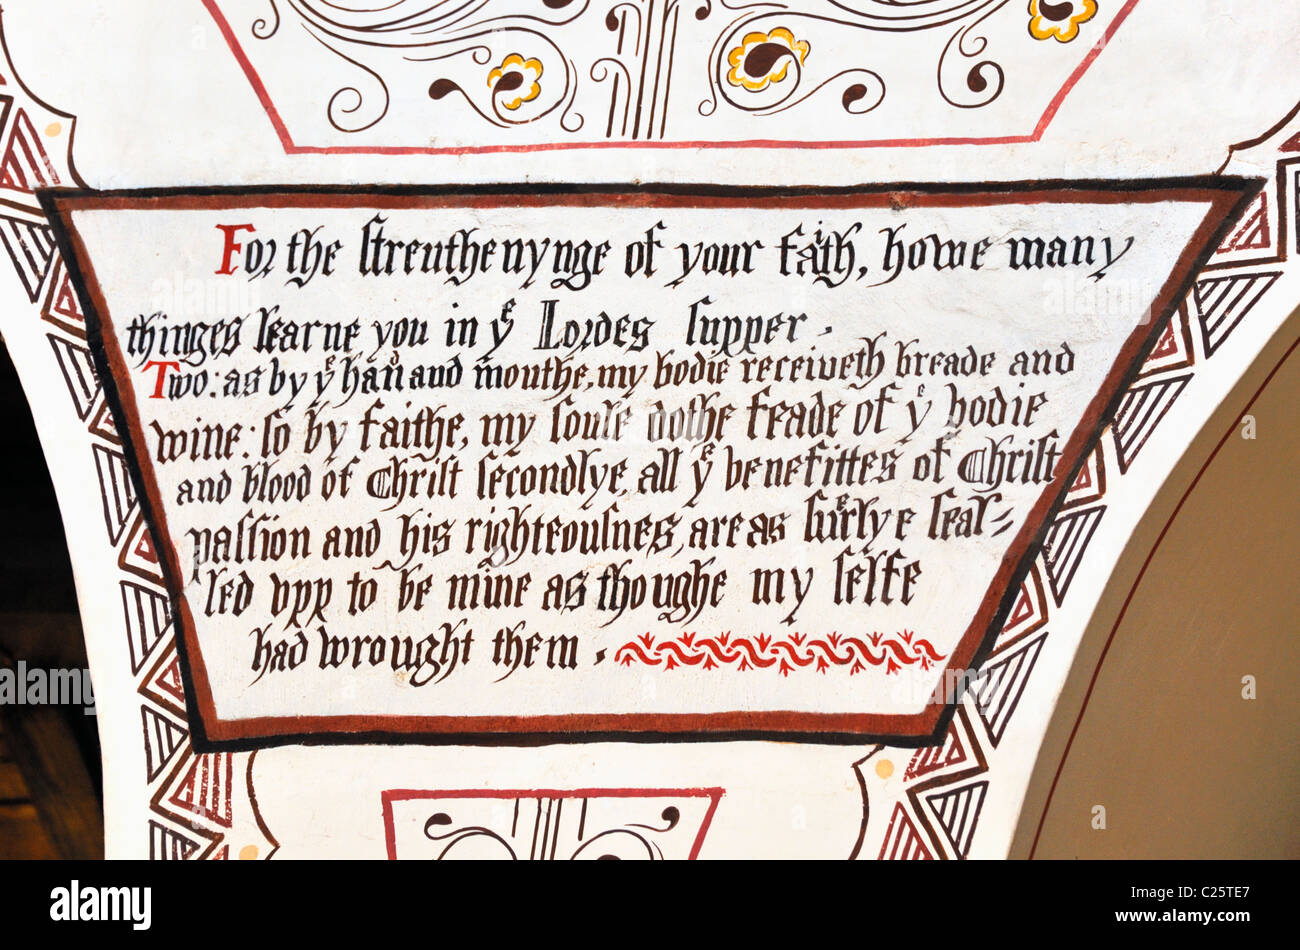 For the strenthenynge of your faith, howe many
thinges learne you in yᵉ Lordes supper.
Two: as by yᵉ hand and mouthe, my bodie receiveth breade and
wine: so by faithe, my soule dothe feade of yᵉ bodie
and blood of Christ secondlye, all yᵉ benefittes of Christ
passion and his righteousnes, are as surely e seal=
led upp to be mine as thoughe my selfe
had wrought them.
alamy
Image ID: C25TE7
www.alamy.com